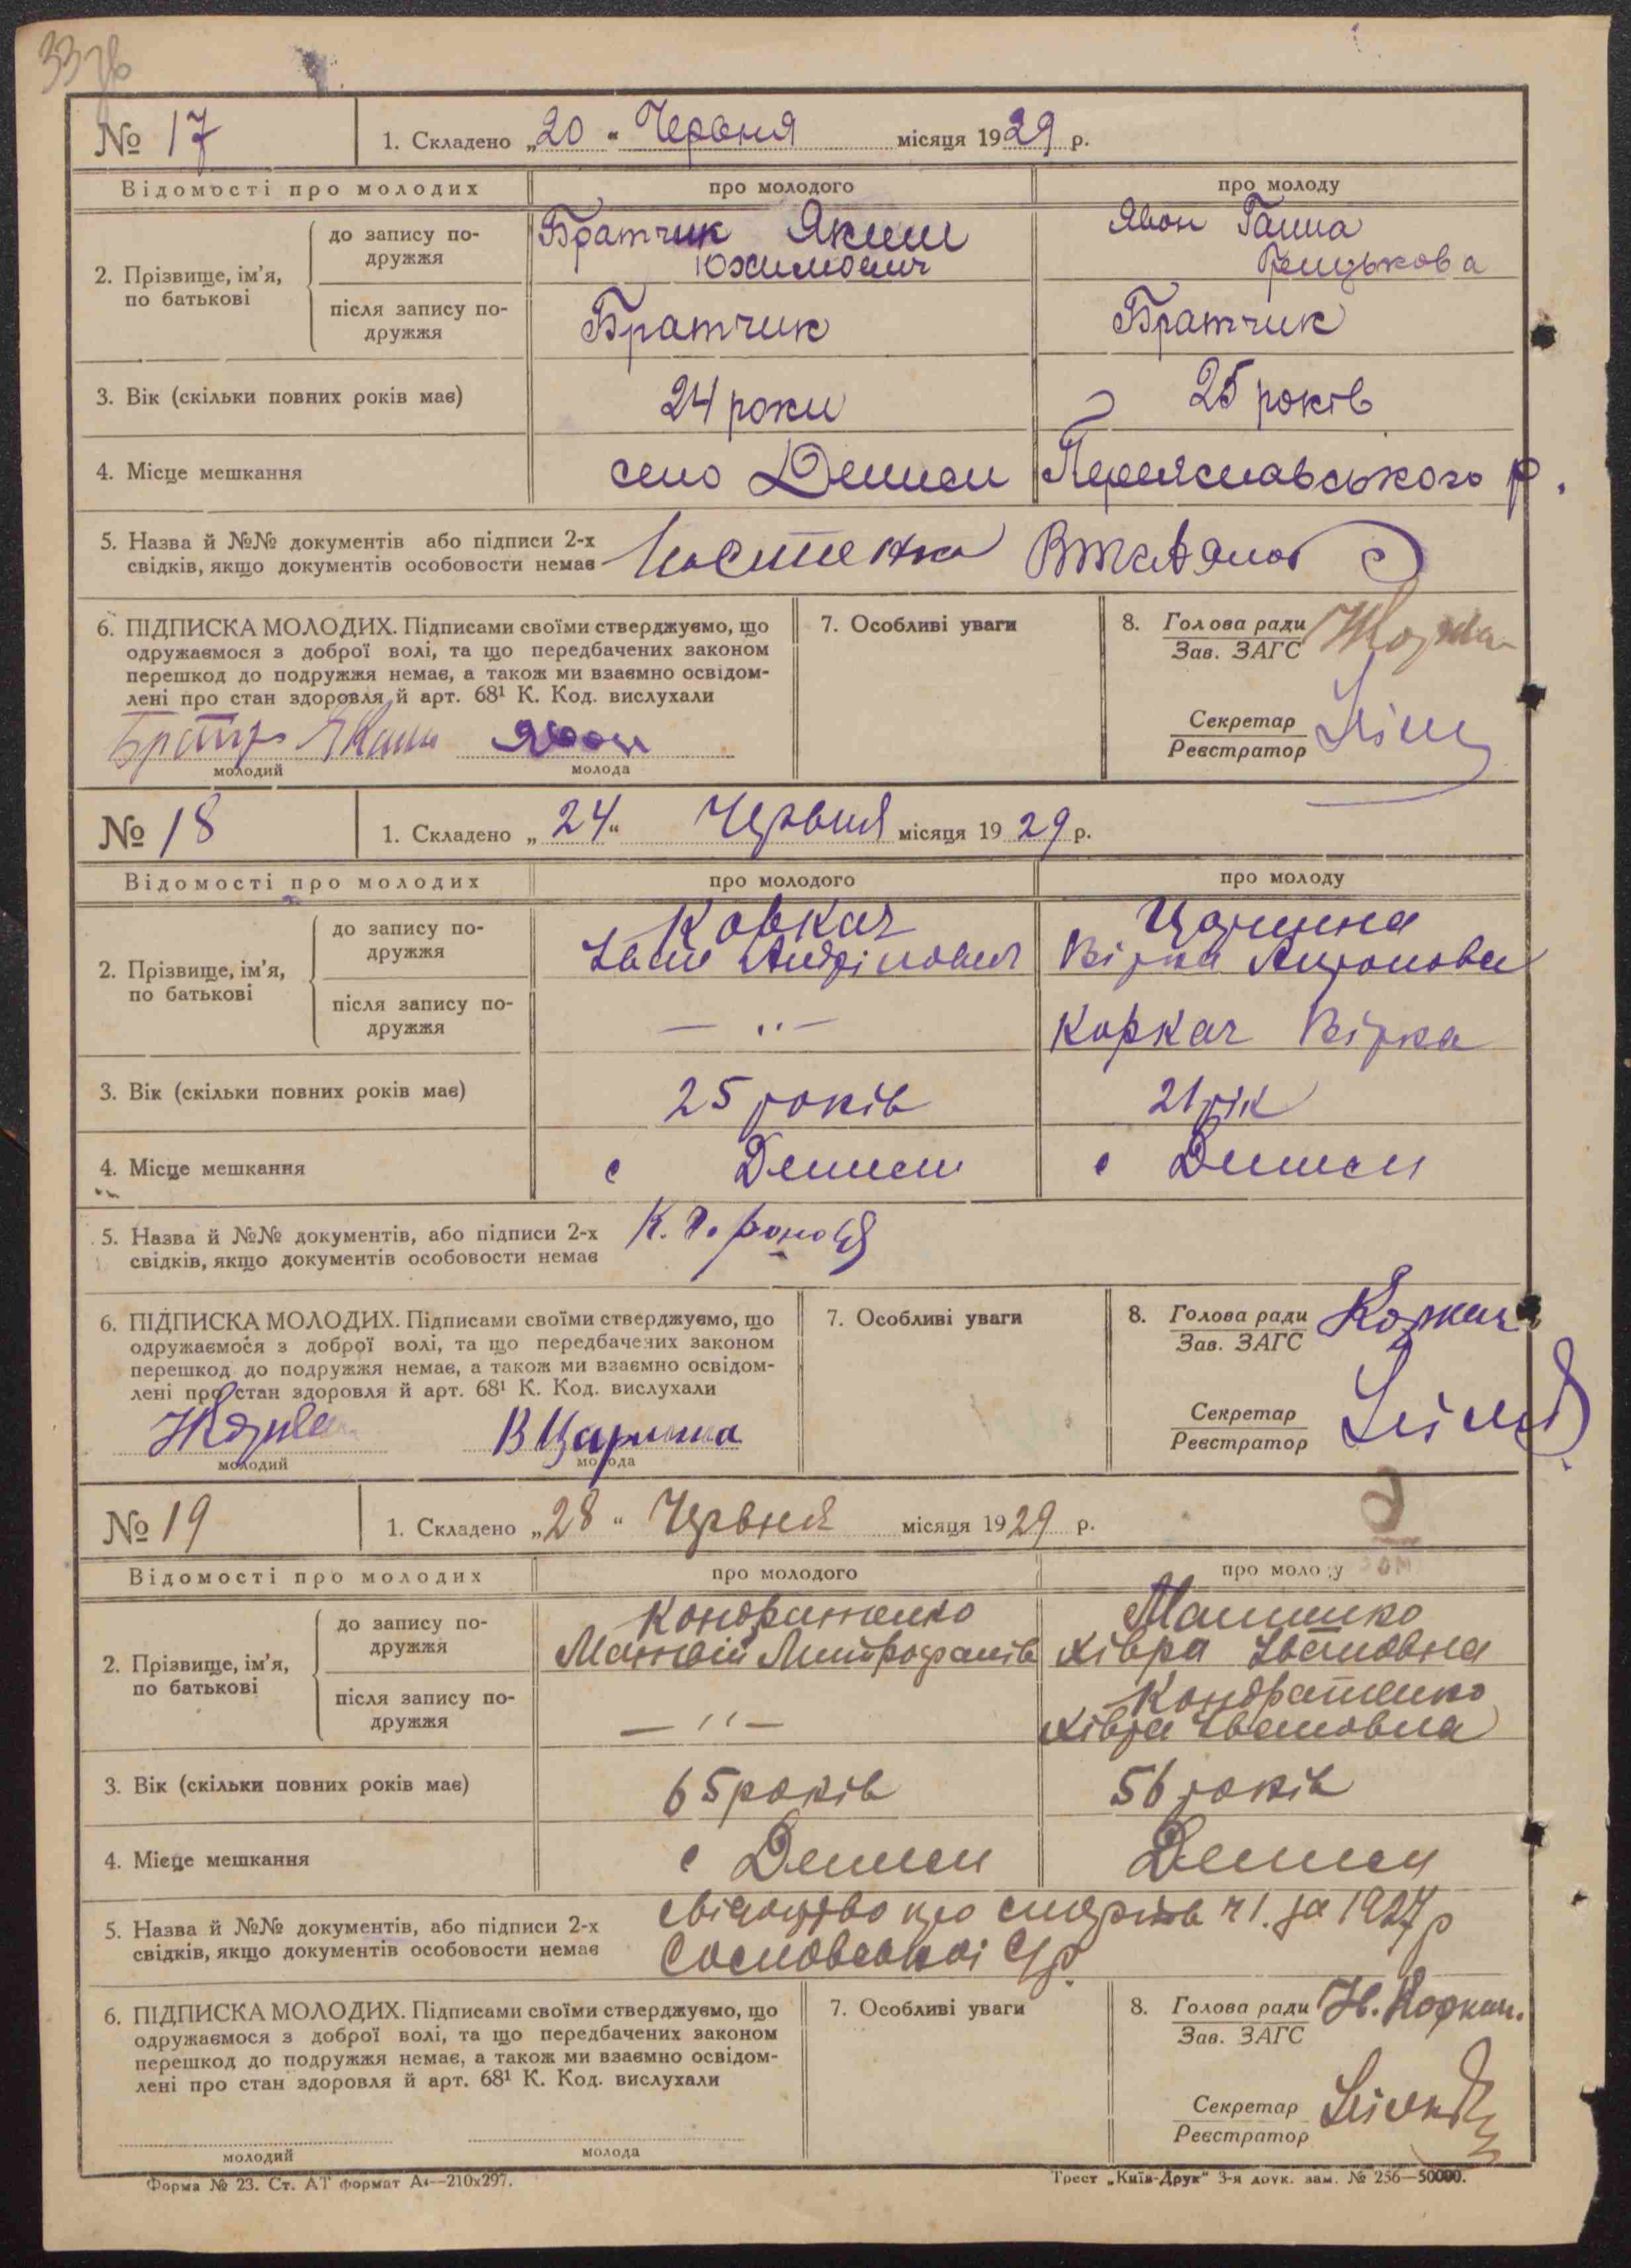 33 зв
№ 17
1. Складено „20“ Червня місяця 1929 р.
Відомості про молодих
про молодого
про молоду
2. Прізвище, ім’я, по батькові
до запису подружжя
Братчик Яким
Юхимович
Явон Ганна
після запису подружжя
Братчик
Братчик
3. Вік (скільки повних років має)
24 роки
25 років
4. Місце мешкання
село Дениси Переяславського р.
5. Назва й №№ документів або підписи 2-х
свідків, якщо документів особовости немає
6. ПІДПИСКА МОЛОДИХ. Підписами своїми стверджуємо, що
одружаємося з доброї волі, та що передбачених законом
перешкод до подружжя немає, а також ми взаємно освідом-
лені про стан здоровля й арт. 68¹ К. Код. вислухали
Яким
Явон
молодий
молода
7. Особливі уваги
8. Голова ради
Зав. ЗАГС
Секретар
Реєстратор
№ 18
1. Складено „24“ Червня місяця 1929 р.
Відомості про молодих
про молодого
про молоду
2. Прізвище, ім’я, по батькові
до запису подружжя
Коркач
Іван Андрійович
Царинна
Вірка
після запису подружжя
— ,, —
Коркач Вірка
3. Вік (скільки повних років має)
25 років
21 рік
4. Місце мешкання
с Дениси
с Дениси
5. Назва й №№ документів, або підписи 2-х
свідків, якщо документів особовости немає
6. ПІДПИСКА МОЛОДИХ. Підписами своїми стверджуємо, що
одружаємося з доброї волі, та що передбачених законом
перешкод до подружжя немає, а також ми взаємно освідом-
лені про стан здоровля й арт. 68¹ К. Код. вислухали
В Царинна
молодий
молода
7. Особливі уваги
8. Голова ради
Зав. ЗАГС
Коркач
Секретар
Реєстратор
№ 19
1. Складено „28“ Червня місяця 1929 р.
Відомості про молодих
про молодого
про молоду
2. Прізвище, ім’я, по батькові
до запису подружжя
Кондратенко
Матвій Митрофанів
Хівря Івановна
після запису подружжя
— ,, —
Кондратенко
Хівря Івановна
3. Вік (скільки повних років має)
65 років
56 років
4. Місце мешкання
с Дениси
Дениси
5. Назва й №№ документів, або підписи 2-х
свідків, якщо документів особовости немає
свідоцтво про смерть ч 1. за 1927 р
Сосновської С/р.
6. ПІДПИСКА МОЛОДИХ. Підписами своїми стверджуємо, що
одружаємося з доброї волі, та що передбачених законом
перешкод до подружжя немає, а також ми взаємно освідом-
лені про стан здоровля й арт. 68¹ К. Код. вислухали
молодий
молода
7. Особливі уваги
8. Голова ради
Зав. ЗАГС
Секретар
Реєстратор
Форма № 23. Ст. АТ формат А4—210х297.
Трест „Київ-Друк“ 3-я друк. зам. № 256—50000.